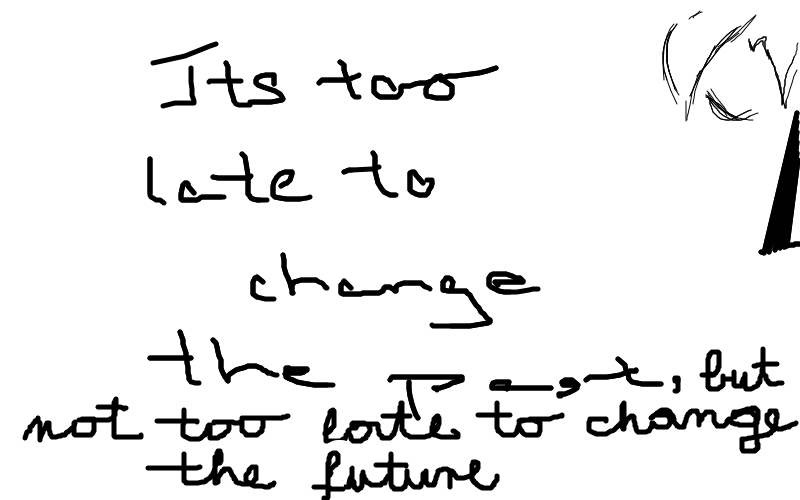 Its too
late to
change
the past, but
not too late to change
the future